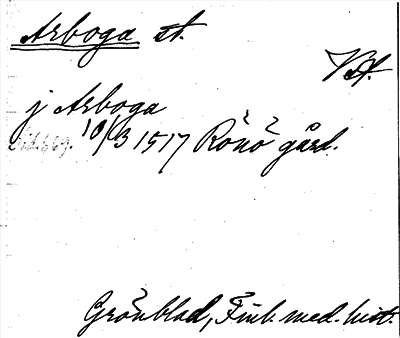 Arboga st.
Vstf.
j Arboga
10/3 1517 Rönö gård.
Grönblad, Finl. med. hist.